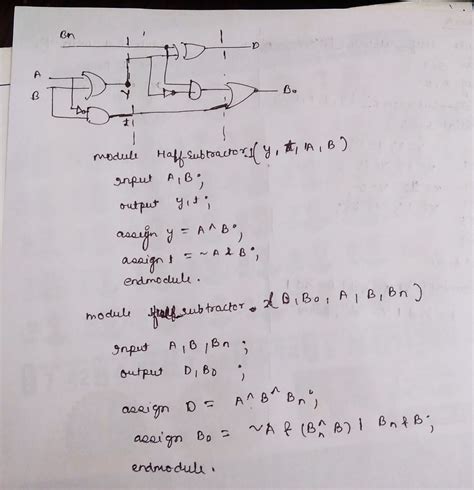 Bn
D
A
B
y
t
B₀
module Half-Subtractor1(y, t, A, B)
input A, B;
output y, t;
assign y = A ^ B;
assign t = ~A & B;
endmodule.
module subtractor (D, B₀, A, B, Bn)
input A, B, Bn;
output D, B₀;
assign D = A ^ B ^ Bn;
assign B₀ = ~A & (Bn ^ B) | Bn & B;
endmodule.